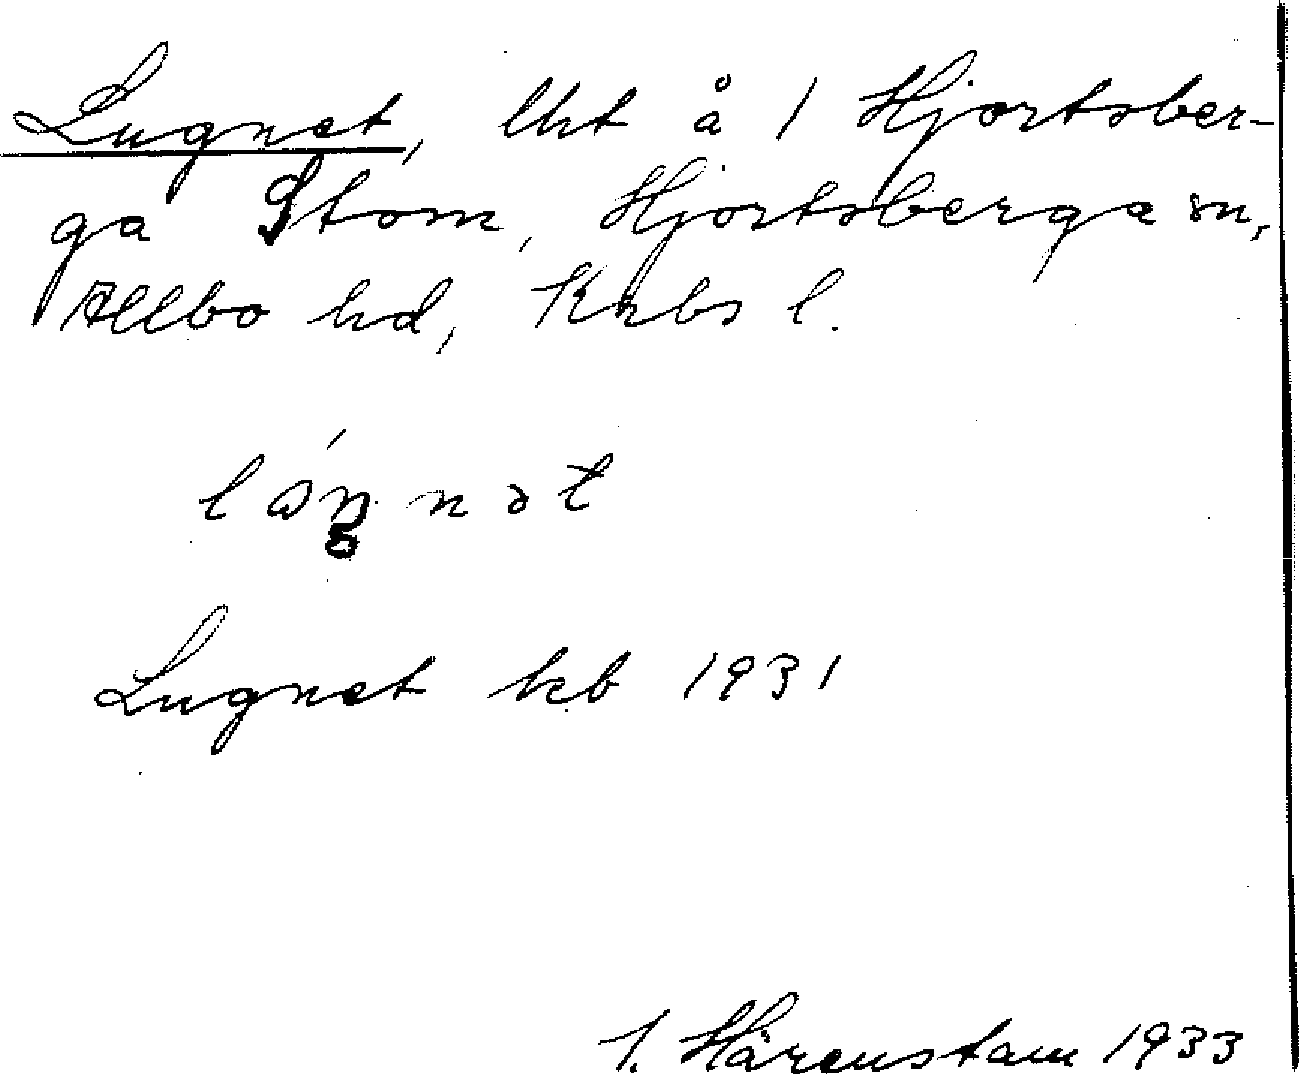 Lugnet, lht å 1 Hjortsber-
ga Stom, Hjortsberga sn,
Allbo hd, Krbs l.
Lugnet kb 1931
J. Härenstam 1933